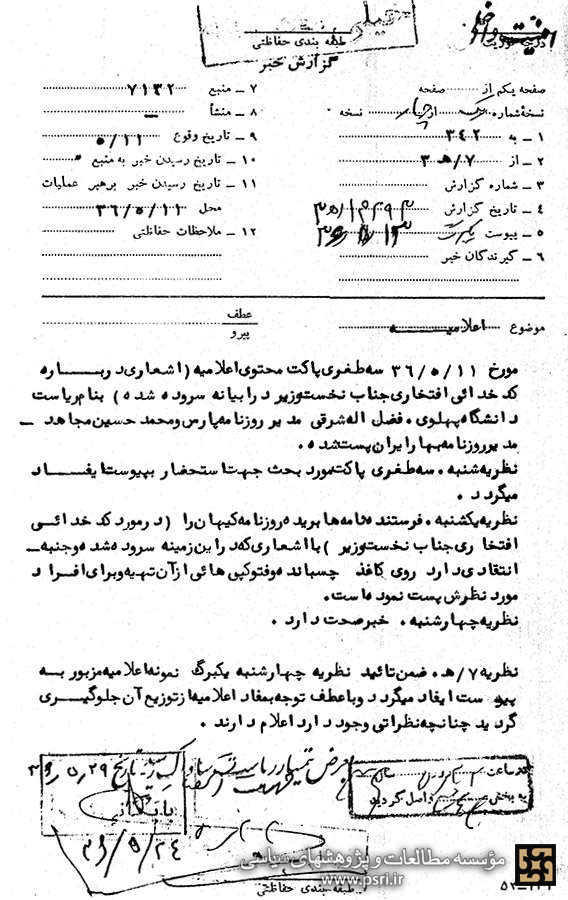 خیلی
طبقه بندی حفاظتی
گزارش خبر
صفحه یکم از صفحه
نسخهٔ شماره یک از چهار نسخه
۱ ــ به ۳۴۲
۲ ــ از ۷/هـ ۳
۳ ــ شماره گزارش
۴ ــ تاریخ گزارش
۵ ــ پیوست
۶ ــ گیرندگان خبر
۷ ــ منبع ۷۱۳۲
۸ ــ منشأ ــ
۹ ــ تاریخ وقوع ۵/۱۱
۱۰ ــ تاریخ رسیدن خبر به منبع
۱۱ ــ تاریخ رسیدن خبر برهبر عملیات
محل ۳۶/۵/۱۱
۱۲ ــ ملاحظات حفاظتی
موضوع اعلامیــــه
عطف
پیرو
مورخ ۳۶/۵/۱۱ سه طغری پاکت محتوی اعلامیه (اشعاری درباره
کدخدائی افتخاری جناب نخست وزیر در ابیانه سروده شده) بنام ریاست
دانشگاه پهلوی. فضل اله شرقی مدیر روزنامه پارس ومحمد حسین مجاهد ــ
مدیر روزنامه بهار ایران پست شده.
نظریه شنبه. سه طغری پاکت مورد بحث جهت استحضار بپیوست ایفاد
میگردد.
نظریه یکشنبه. فرستنده نامه ها بریده روزنامه کیهان را (در مورد کدخدائی
افتخاری جناب نخست وزیر) با اشعاری که در این زمینه سروده شده و جنبه ــ
انتقادی دارد روی کاغذ چسبانده وفتوکپی هائی از آن تهیه وبرای افراد
مورد نظرش پست نموده است.
نظریه چهارشنبه. خبر صحت دارد.
نظریه ۷/هـ. ضمن تائید نظریه چهارشنبه یکبرگ نمونه اعلامیه مزبور به
پیوست ایفاد میگردد وباعطف توجه بمفاد اعلامیه از توزیع آن جلوگیری
گردید چنانچه نظراتی وجود دارد اعلام دارند.
بعرض تیمسار ریاست ساواک رسید تاریخ ۳۶/۵/۲۹
بایگانی
۳۶/۵/۲۴
در ساعت
به بخش واصل گردید
طبقه بندی حفاظتی
مؤسسه مطالعات و پژوهشهای سیاسی
www.psri.ir